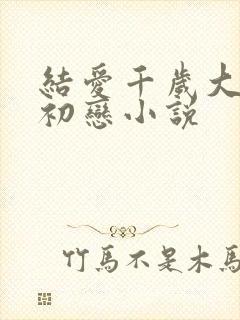 結愛千歲大
初戀小說
竹馬不是木馬